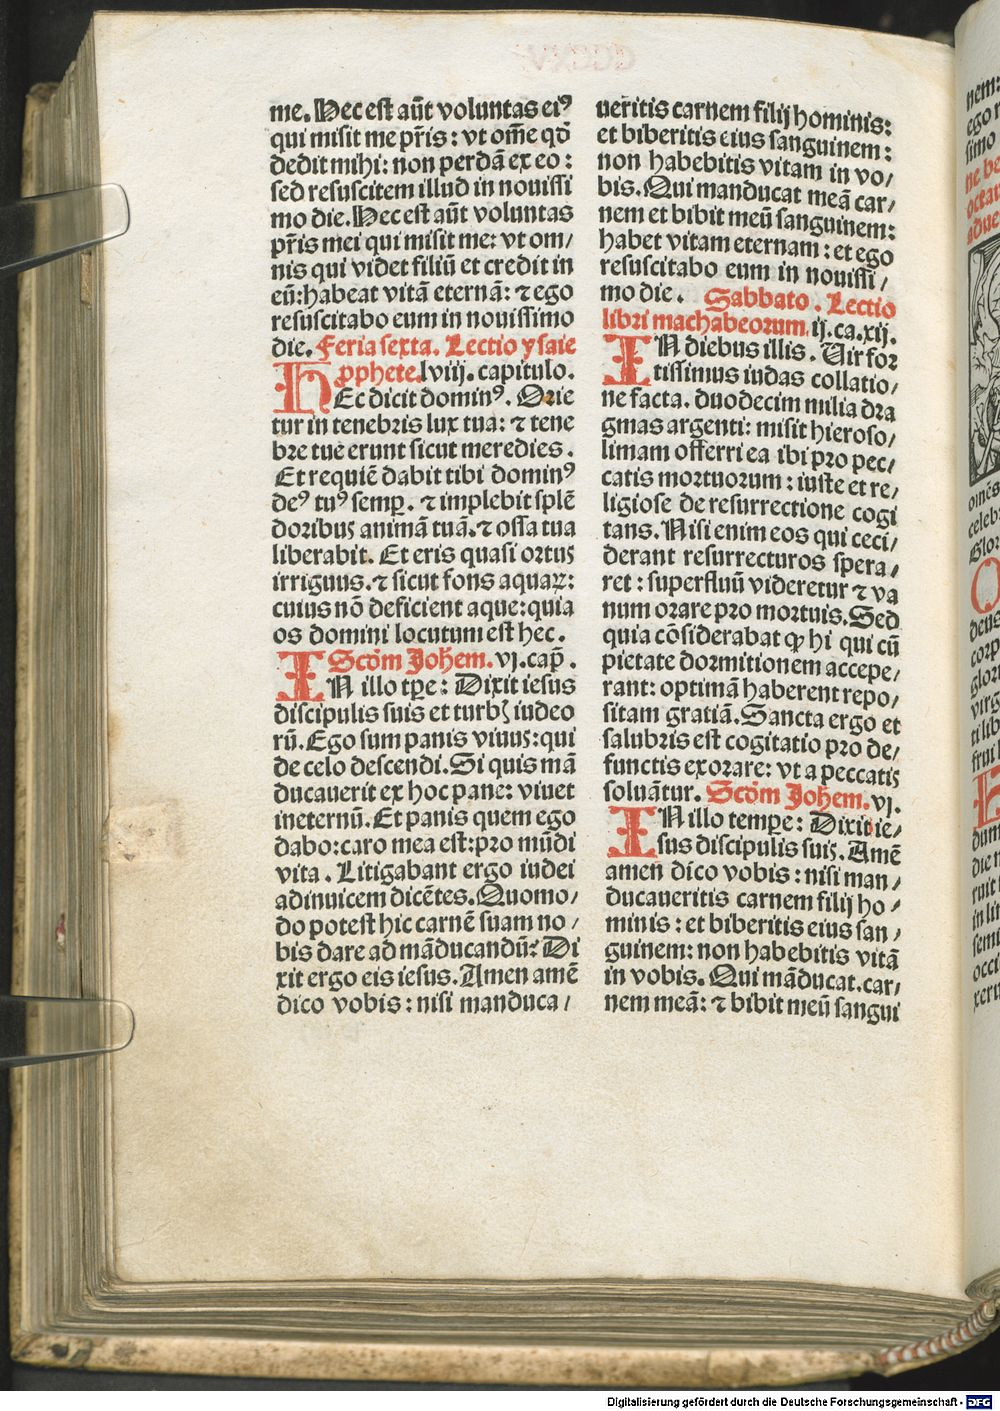 me. Hec est aūt voluntas eiꝰ
qui misit me pr̄is: vt om̄e qd̄
dedit mihi: non perdā ex eo:
sed resuscitem illud in nouissi
mo die. Hec est aūt voluntas
pr̄is mei qui misit me: vt om/
nis qui videt filiū et credit in
eū: habeat vitā eternā: ⁊ ego
resuscitabo eum in nouissimo
die. Feria sexta. Lectio ysaie
ꝓphete. lviij. capitulo.
HEc dicit dominꝰ. Orie
tur in tenebris lux tua: ⁊ tene
bre tue erunt sicut meredies.
Et requiē dabit tibi dominꝰ
deꝰ tuꝰ semꝑ. ⁊ implebit splē
doribus animā tuā. ⁊ ossa tua
liberabit. Et eris quasi ortus
irriguus. ⁊ sicut fons aquaꝝ:
cuius nō deficient aque: quia
os domini locutum est hec.
Scōm Johem. vj. cap̄.
IN illo tꝑe: Dixit iesus
discipulis suis et turbꝫ iudeo
rū. Ego sum panis viuus: qui
de celo descendi. Si quis mā
ducauerit ex hoc pane: viuet
ineternū. Et panis quem ego
dabo: caro mea est: pro mūdi
vita. Litigabant ergo iudei
adinuicem dicētes. Quomo/
do potest hic carnē suam no/
bis dare ad māducandū? Di
xit ergo eis iesus. Amen amē
dico vobis: nisi manduca/
ueritis carnem filij hominis:
et biberitis eius sanguinem:
non habebitis vitam in vo/
bis. Qui manducat meā car/
nem et bibit meū sanguinem:
habet vitam eternam: et ego
resuscitabo eum in nouissi/
mo die. Sabbato. Lectio
libri machabeorum. ij. ca. xij.
IN diebus illis. Vir for
tissimus iudas collatio/
ne facta. duodecim milia dra
gmas argenti: misit hieroso/
limam offerri ea ibi pro pec/
catis mortuorum: iuste et re/
ligiose de resurrectione cogi
tans. Nisi enim eos qui ceci/
derant resurrecturos spera/
ret: superfluū videretur ⁊ va
num orare pro mortuis. Sed
quia cōsiderabat ꝙ hi qui cū
pietate dormitionem accepe/
rant: optimā haberent repo/
sitam gratiā. Sancta ergo et
salubris est cogitatio pro de/
functis exorare: vt a peccatis
soluātur. Scōm Johem. vj.
IN illo tempꝛe: Dixit ie/
sus discipulis suis. Amē
amen dico vobis: nisi man/
ducaueritis carnem filij ho/
minis: et biberitis eius san/
guinem: non habebitis vitā
in vobis. Qui māducat. car/
nem meā: ⁊ bibit meū sangui
Digitalisierung gefördert durch die Deutsche Forschungsgemeinschaft - DFG